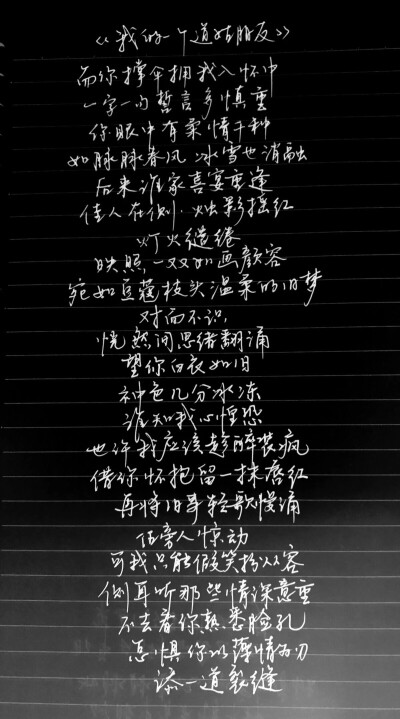 《我的一个道姑朋友》
而你撑伞拥我入怀中
一字一句誓言多慎重
你眼中有柔情千种
如脉脉春风 冰雪也消融
后来谁家喜宴重逢
佳人在侧 烛影摇红
灯火缱绻
映照一双如画颜容
宛如豆蔻枝头温柔的旧梦
对面不识
恍然间思绪翻涌
望你白衣如旧
神色几分冰冻
谁知我心惶恐
也许我应该趁醉装疯
借你怀抱留一抹唇红
再将旧事轻歌慢诵
任旁人惊动
可我只能假笑扮从容
侧耳听那些情深意重
不去看你熟悉脸孔
怎惧你以薄情为刃
添一道裂缝